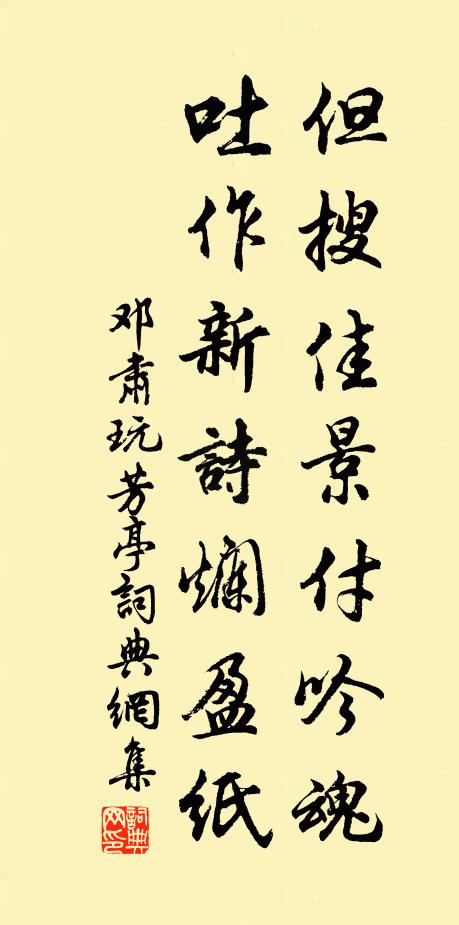 但搜佳景付吟魂
吐作新詩爛盈紙
邓肃玩芳亭詞典網集
詞典网印